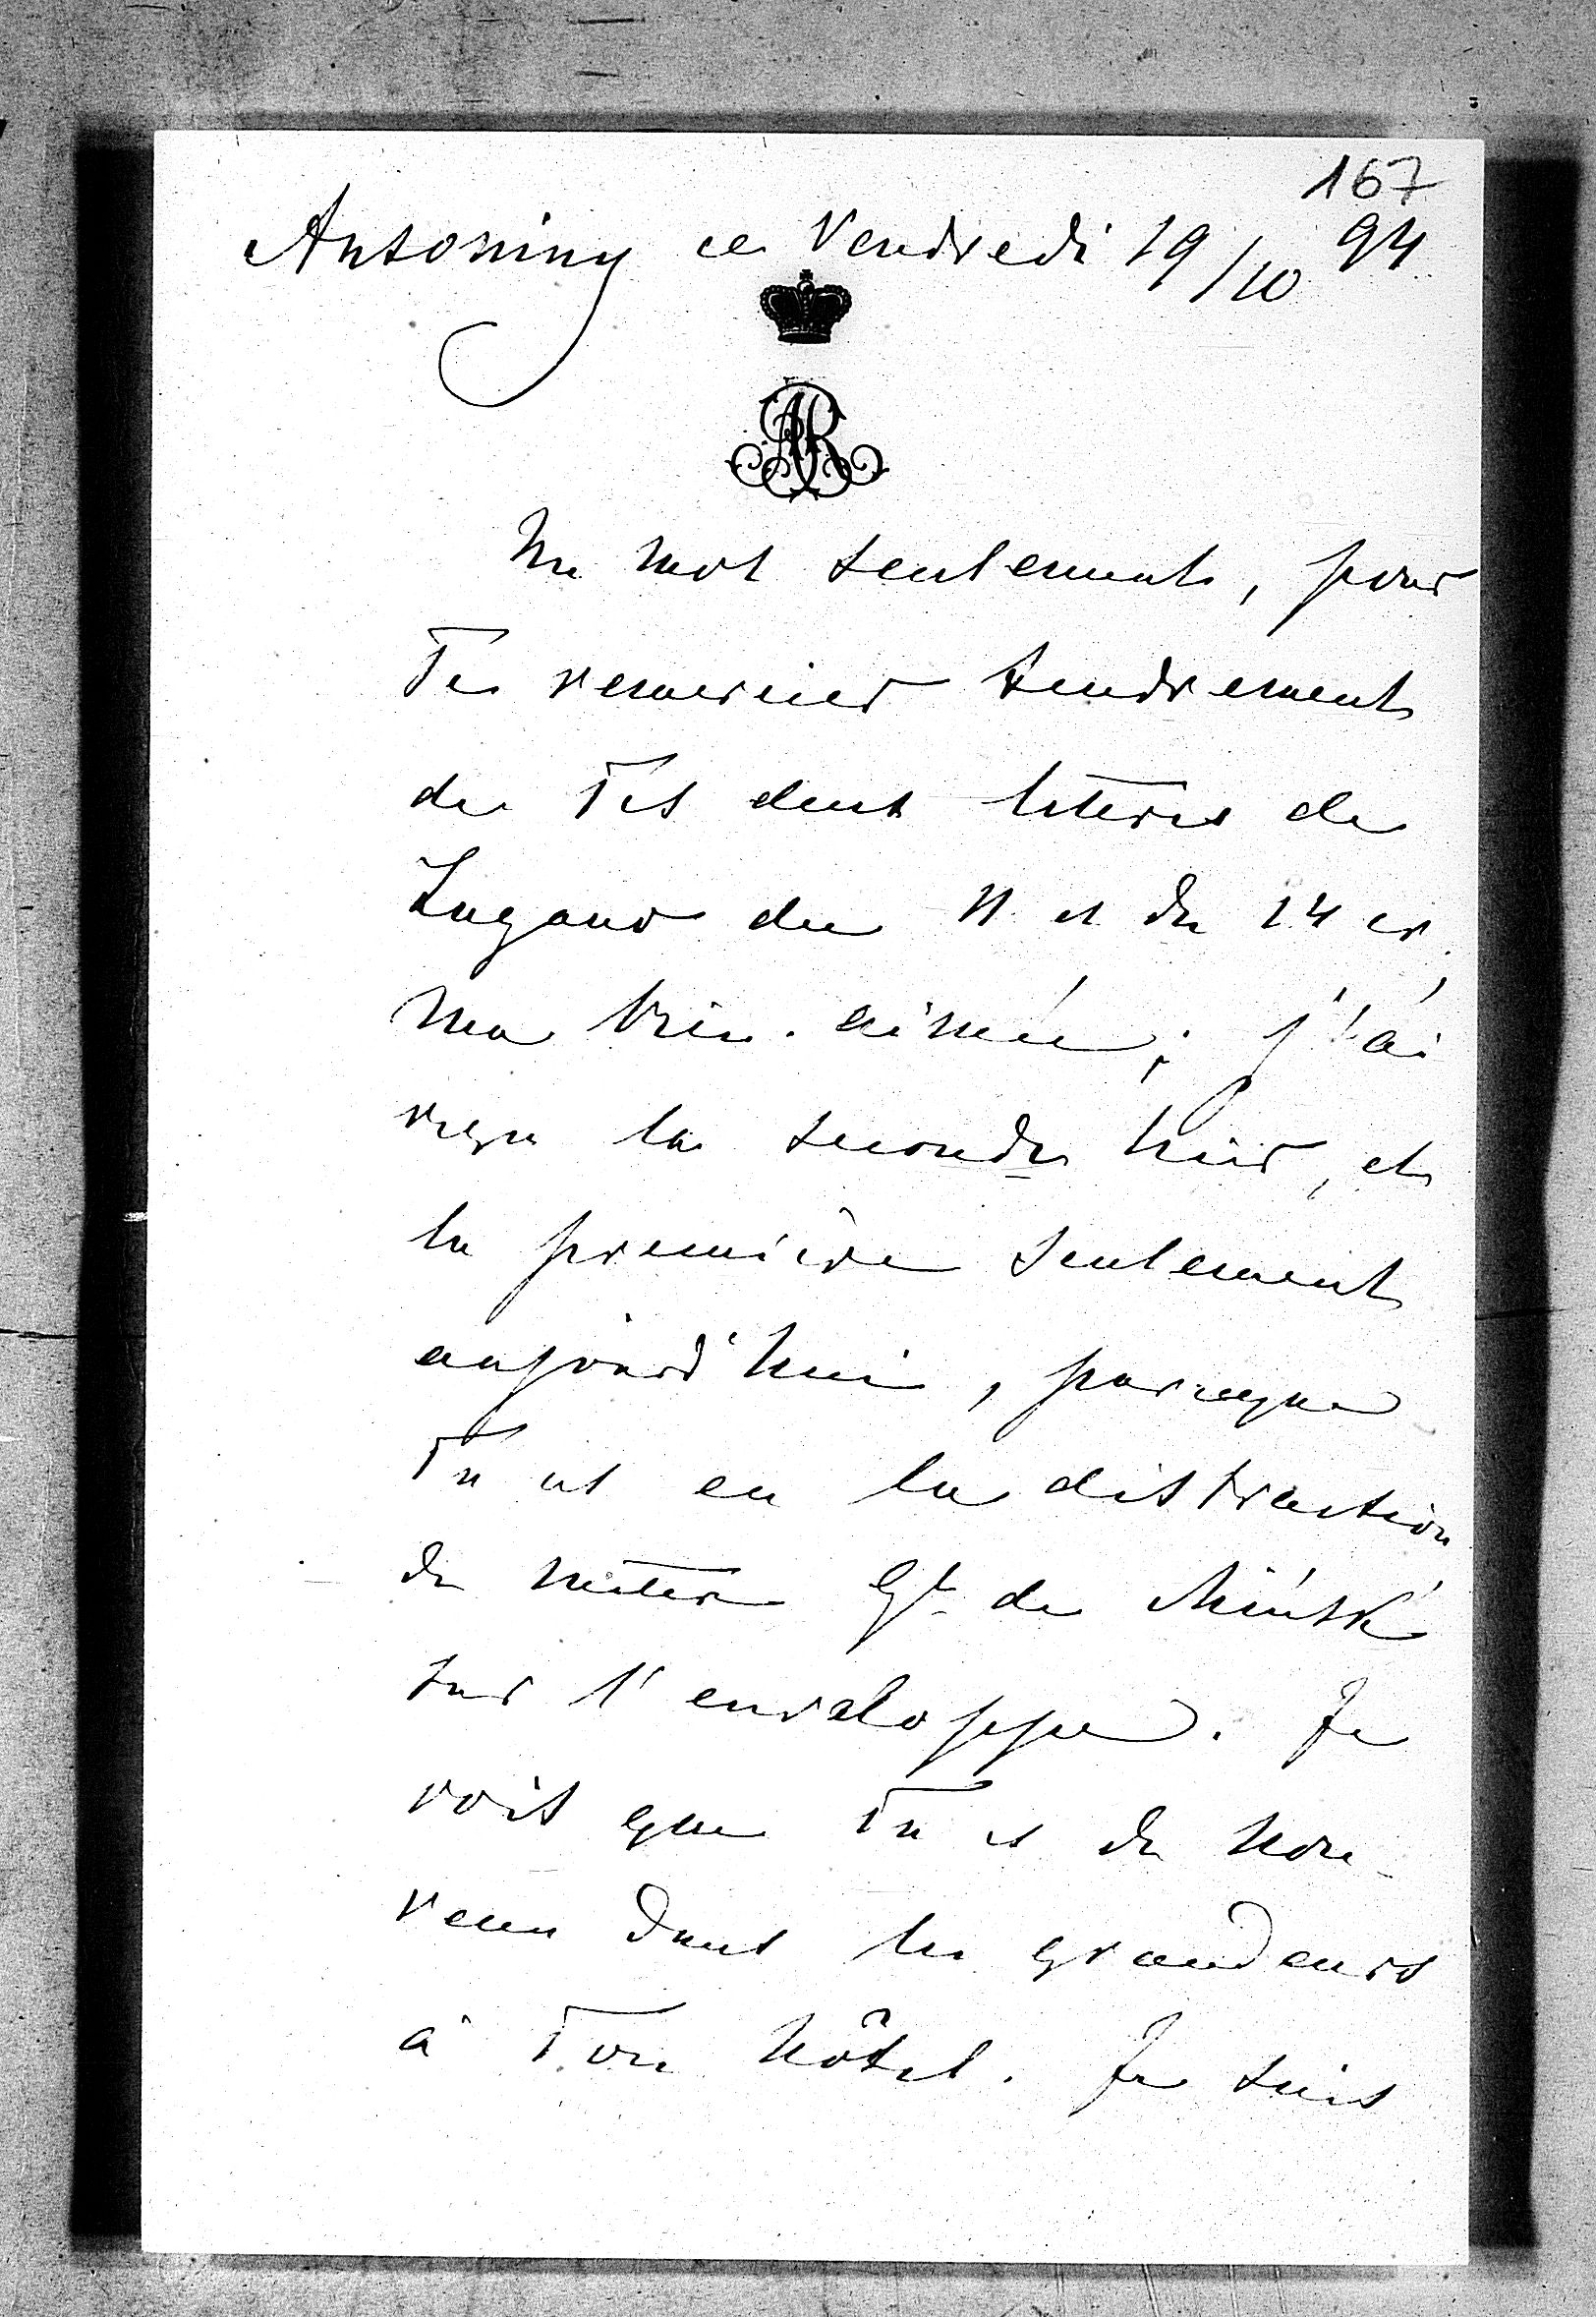 167
Antoniny ce Vendredi 19/10 94
AR
Un mot seulement, pour
Te remercier tendrement
de Tes deux lettres de
Lugano du 11 et du 14 cr,
ma bien-aimée; j'ai
reçu la seconde hier, et
la première seulement
aujourd'hui, parceque
Tu as eu la distraction
de mettre Gt. de Minsk
sur l'enveloppe. Je
vois que Tu es de nou-
veau dans les grandeurs
à Ton hôtel. Je suis